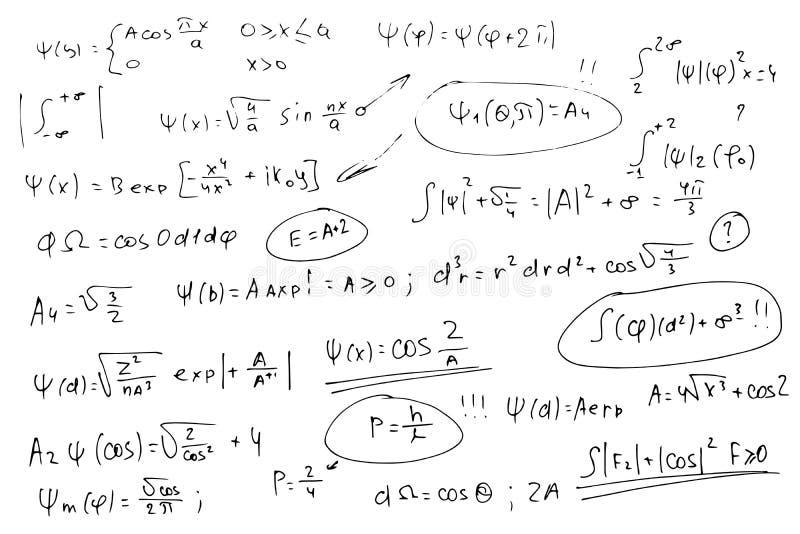 ψ(y) = { Acos πx/a   0 ≥ x ≤ a
0   x > 0
ψ(φ) = ψ(φ + 2π)
∫ 2 2∞ |ψ|(φ)² x = 4
| ∫ -∞ +∞ |
ψ(x) = √4/a sin nx/a
ψ₁(θ, π) = A₄
!!
?
∫ -1 +2 |ψ|₂(φ₀)
ψ(x) = B exp [-x⁴/4x² + iK₀y]
∫|ψ|² + √1/4 = |A|² + ∞ = 4π/3
φΩ = cos0d1dφ
E = A+2
?
A₄ = √3/2
ψ(b) = A Axp! = A ≥ 0 ; d³r = r² drd² + cos√4/3
∫(φ)(d²) + ∞³ !!
ψ(d) = √Z²/nA³ exp|+ A/A+1|
ψ(x) = cos 2/A
A = 4√x³ + cos2
P = h/
!!!
ψ(d) = Aerp
A₂ ψ(cos) = √2/cos² + 4
∫|F₂| + |cos|² F ≥ 0
ψm(φ) = √cos/2π ;
P = 2/4
dΩ = cosθ ; 2A